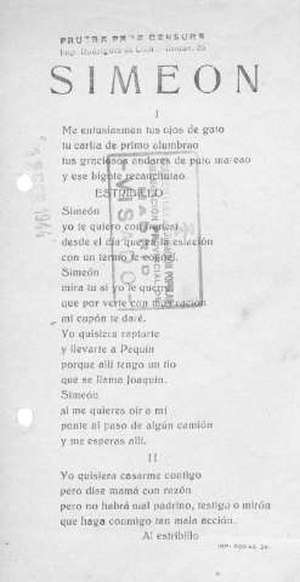 PRUEBA PARA CENSURA
Imp. Rodríguez de León
SIMEON
I
Me entusiasman tus ojos de gato
tu carita de primo alumbrao
tus graciosos andares de pato mareao
y ese bigote recauchutao
ESTRIBILLO
Simeón
yo te quiero con
desde el día que en la estación
con un termo te
Simeón
mira tu si yo te querré
que por verte con mi ración
mi cupón te daré.
Yo quisiera raptarte
y llevarte a Pequín
porque allí tengo un tío
que se llama Joaquín.
Simeón
si me quieres oir a mí
ponte al paso de algún camión
y me esperas allí.
II
Yo quisiera casarme contigo
pero dise mamá con razón
pero no habrá cual padrino, testigo o mirón
que haga conmigo tan mala acción.
Al estribillo
VISADO
MADRID
1944